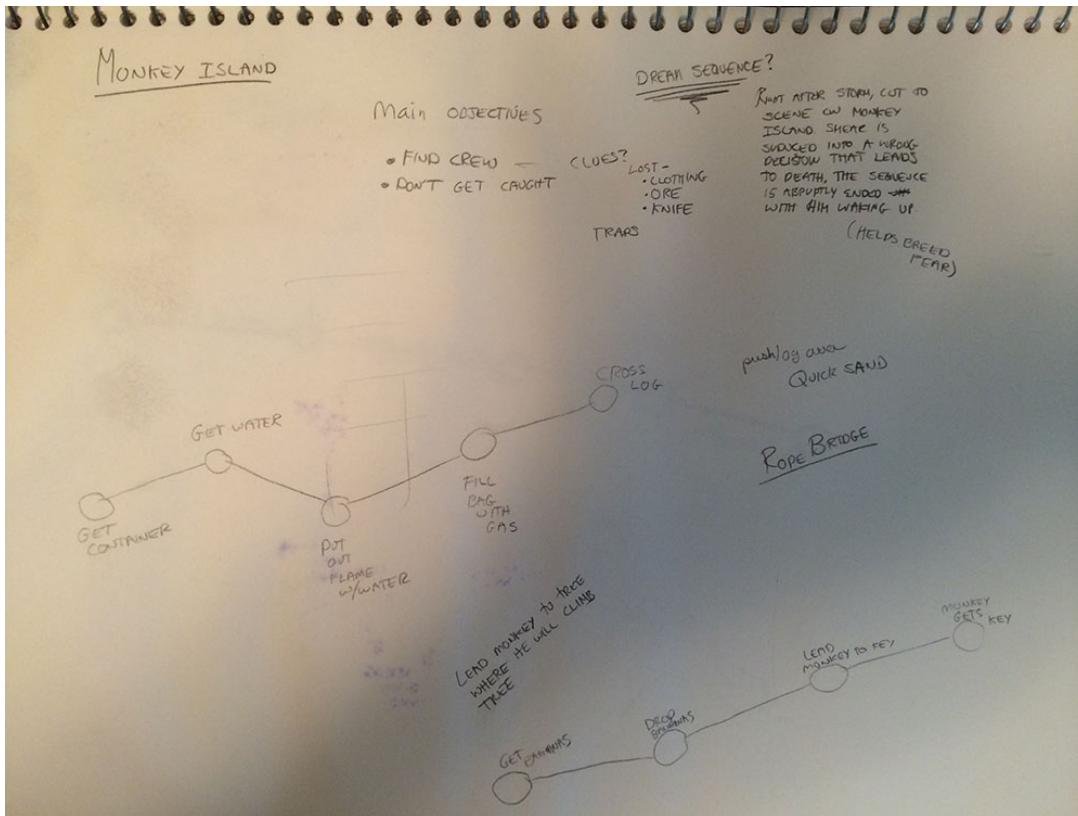 MONKEY ISLAND
Main OBJECTIVES
• FIND CREW — CLUES?
• DON'T GET CAUGHT
LOST -
• CLOTHING
• ORE
• KNIFE
TRAPS
DREAM SEQUENCE?
RIGHT AFTER STORM, CUT TO
SCENE ON MONKEY
ISLAND. SHEAR IS
SUDUCED INTO A WRONG
DECISION THAT LEADS
TO DEATH, THE SEQUENCE
IS ABRUPTLY ENDED
WITH HIM WAKING UP.
(HELPS BREED
FEAR)
push log over
QUICK SAND
ROPE BRIDGE
GET
CONTAINER
GET WATER
PUT
OUT
FLAME
W/WATER
FILL
BAG
WITH
GAS
CROSS
LOG
LEAD MONKEY TO TREE
WHERE HE WILL CLIMB
TREE
GET
BANANAS
DROP
BANANAS
LEAD
MONKEY TO KEY
MONKEY
GETS
KEY